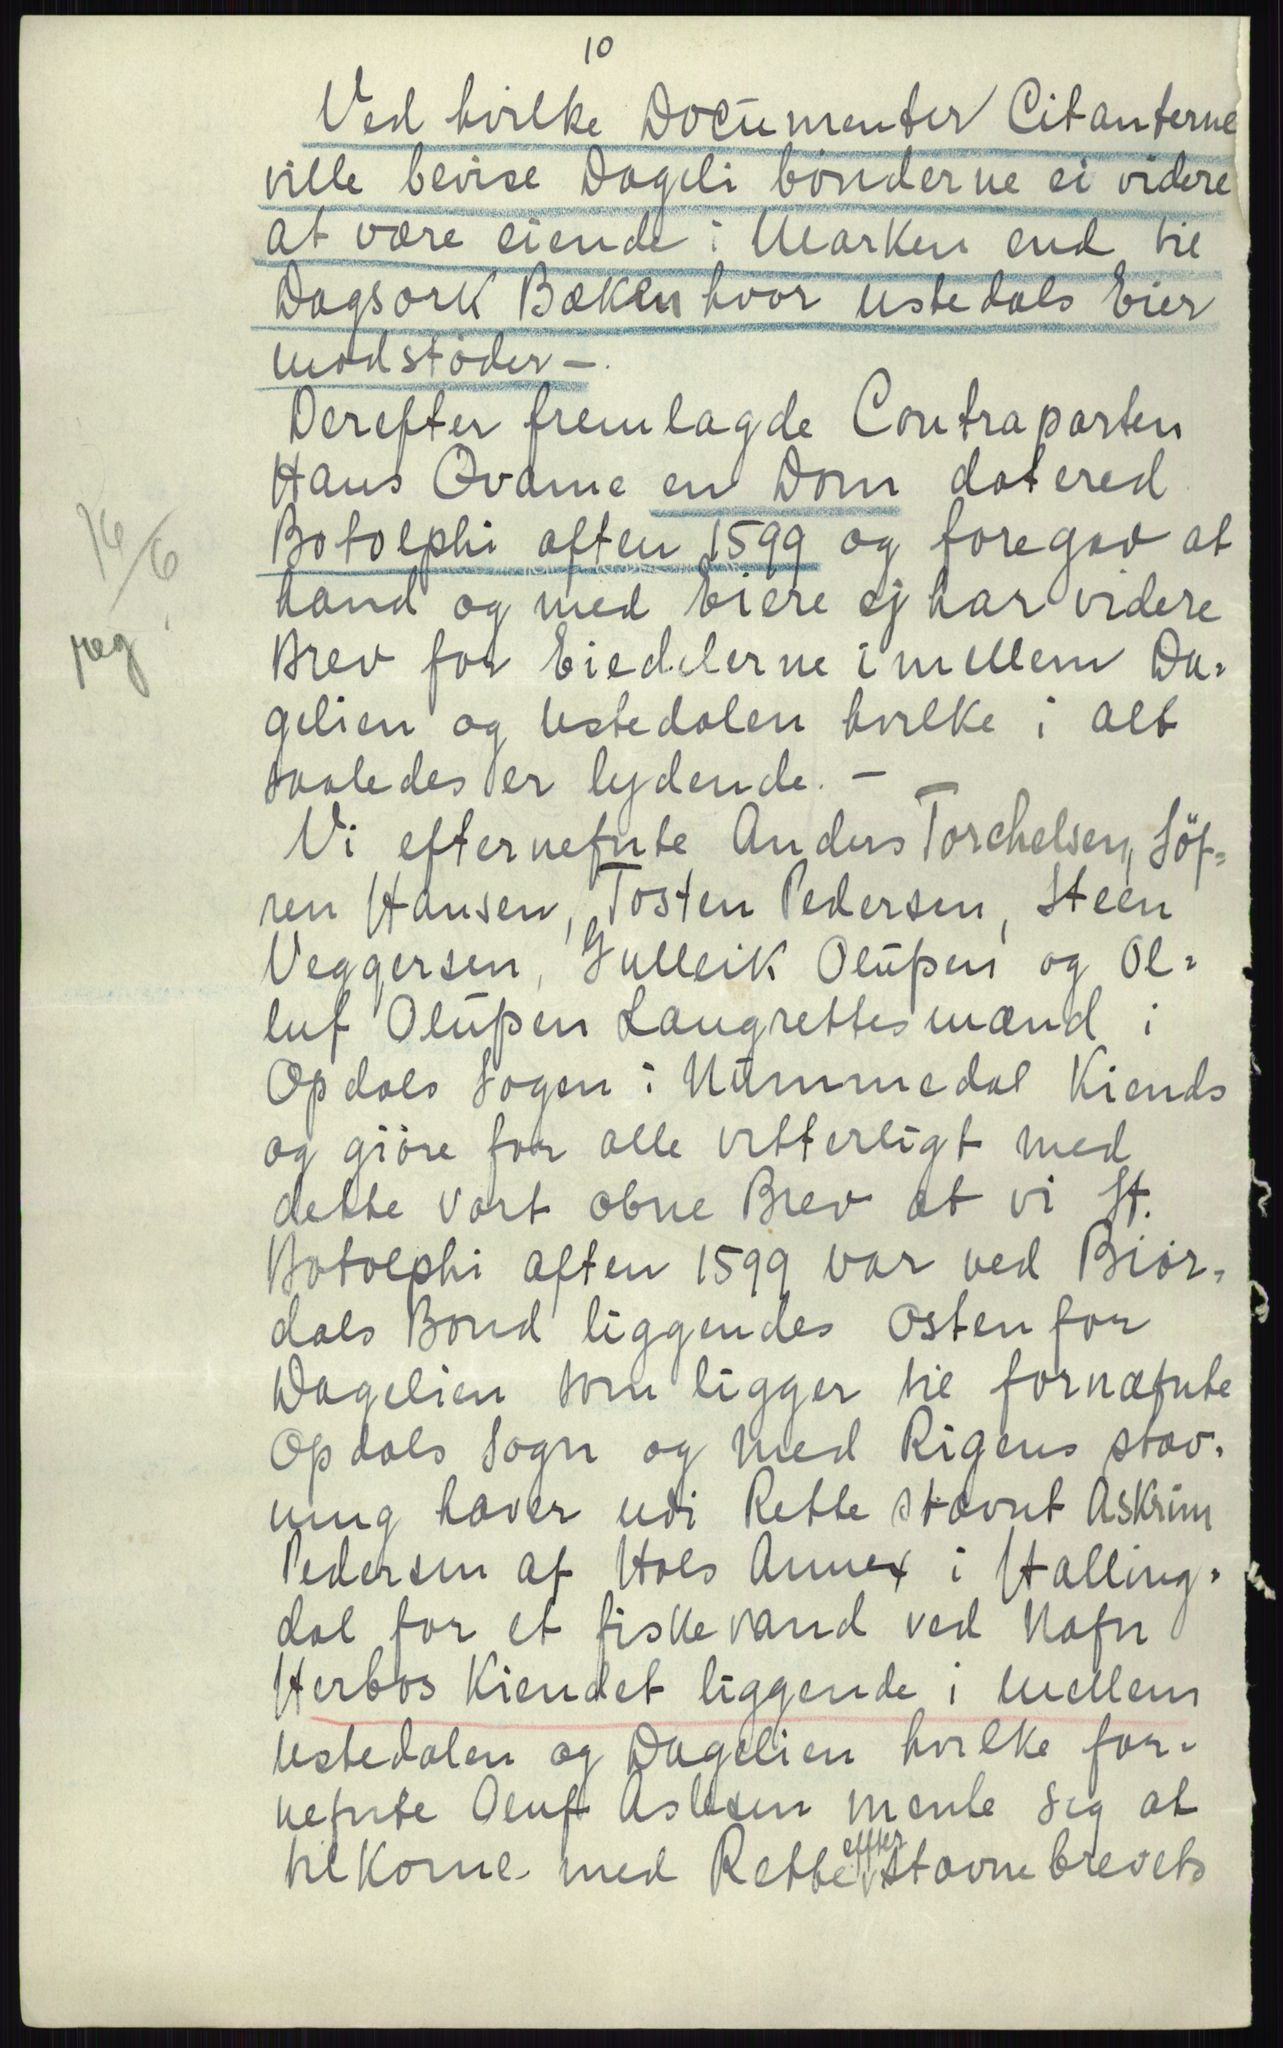 10
Ved hvilke Documenter Citanterne
ville bevise Dageli bønderne ei videre
at være eiende i Marken end til
Dagsork Bæken hvor Ustedals Eier
modstöder —.
Derefter fremlagde Contraparten
Hans Qvame en Dom datered
Botolphi aften 1599 og foregav at
hand og med Eiere ej har videre
Brev for Eiedelerne imellem Da-
gelien og Ustedalen hvilke i alt
saaledes er lydende. —
16/6
jeg
Vi efternefnte Anders Torchelsen, Söf-
ren Hansen, Tosten Pedersen, Steen
Veggersen, Gulleik Olüßen og Ol-
luf Olüßen Laugrettesmænd i
Opdals Sogen i Nümmedal Kiends
og giöre for alle vitterligt med
dette vort obne Brev at vi St.
Botolphi aften 1599 var ved Biör-
dals Bond liggendes Østen for
Dagelien som ligger til fornæfnte
Opdals Sogn og med Rigens stav-
ning haver udi Rette stævnt Askrim
Pedersen af Hols Annex i Halling-
dal for et fiskevand ved Nafn
Herbos Kiendet liggende i mellem
Ustedalen og Dagelien hvilke for-
nefnte Oluf Aslesen mente sig at
tilkome med Rette effter stævnebrevets